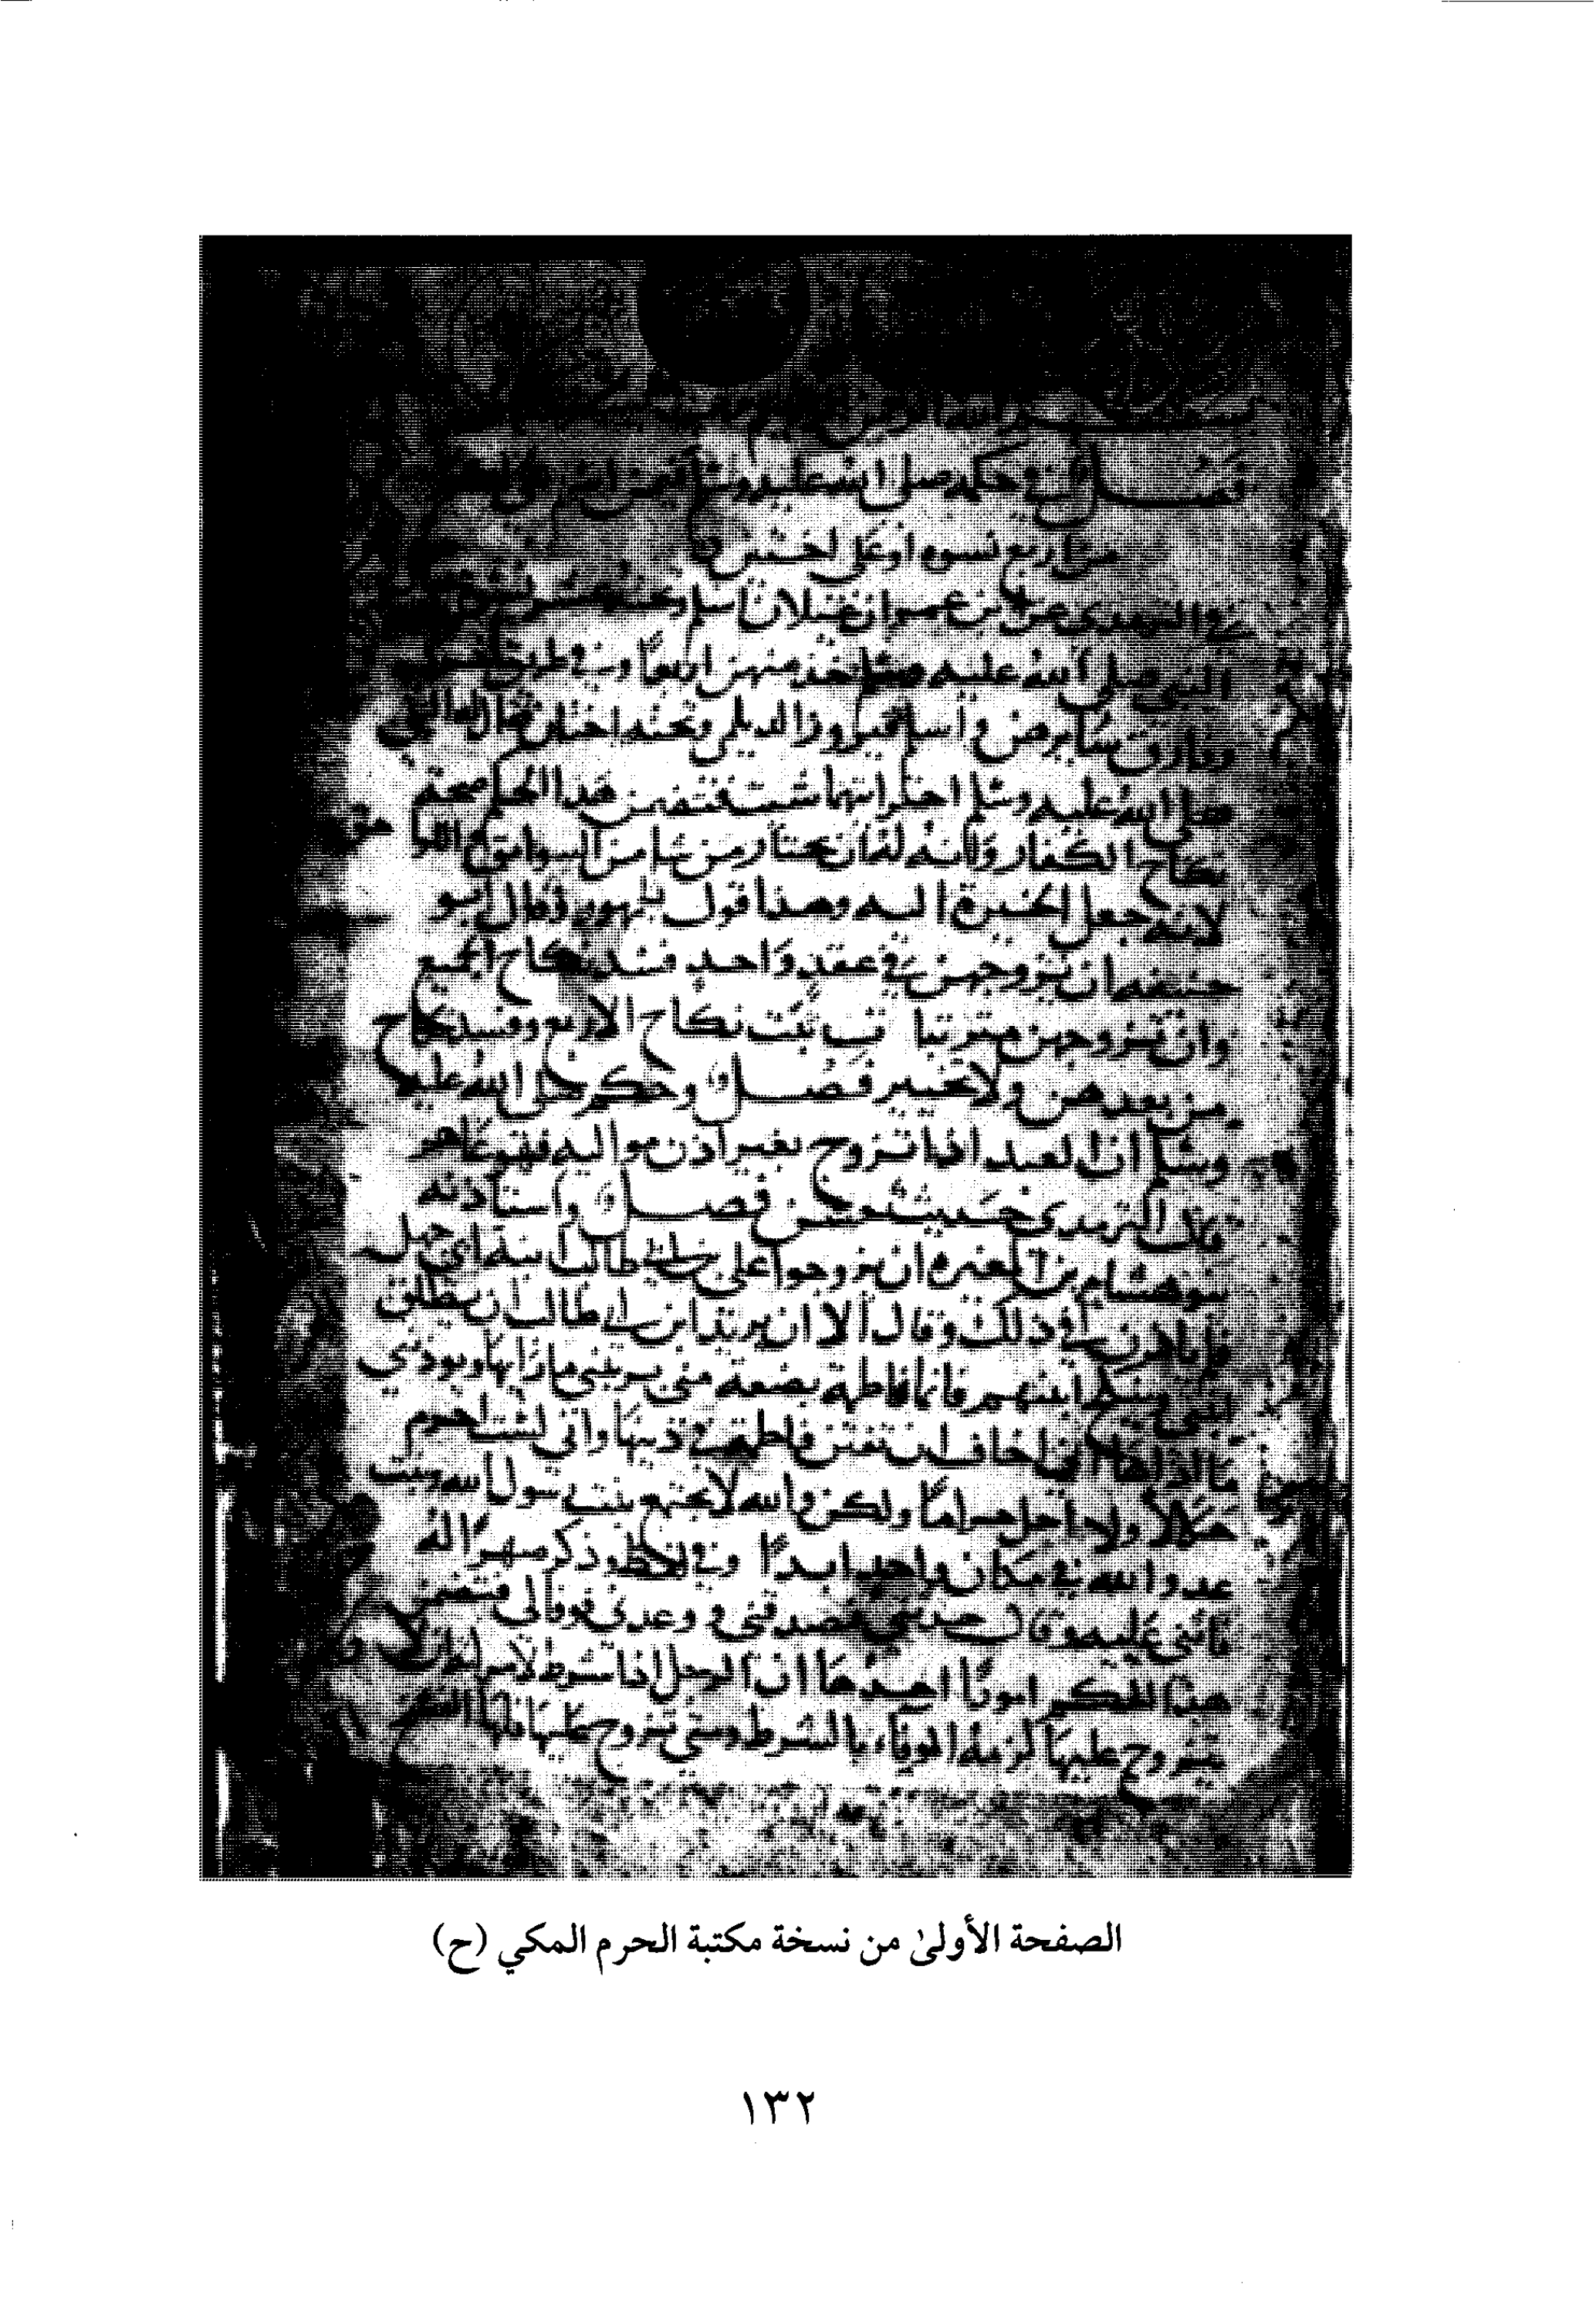 فصل في حكمه صلى الله عليه وسلم فيمن اسلم على اكثر
من اربع نسوة او على اختين
في الترمذي عن ابن عمر ان غيلان اسلم وتحته عشر نسوة فقال له
النبي صلى الله عليه وسلم اختر منهن اربعا وفي طريق اخرى
وفارق سايرهن واسلم فيروز الديلمي وتحته اختان فقال له النبي
صلى الله عليه وسلم اختر ايتهما شيت فتضمن هذا الحكم صحة
نكاح الكفار وانه له ان يختار من شا من السوابق واللواحق
لانه جعل الخيرة اليه وهذا قول الجمهور وقال ابو
حنيفه ان تزوجهن في عقد واحد فسد نكاح الجميع
وان تزوجهن مترتبا ثبت نكاح الاربع وفسد نكاح
من بعدهن ولا تخيير فصل وحكم صلى الله عليه
وسلم ان العبد اذا تزوج بغير اذن مواليه فهو عاهر
قال الترمذي حديث حسن فصل واستاذنه
بنو هشام بن المغيره ان يزوجوا علي بن ابي طالب ابنة ابي جهل
فلم ياذن في ذلك وقال الا ان يريد ابن ابي طالب ان يطلق
ابنتي وينكح ابنتهم فانما فاطمة بضعة مني يريبني ما رابها ويوذيني
ما اذاها اني اخاف ان تفتن فاطمة في دينها واني لست احرم
حلالا ولا احل حراما ولكن والله لا تجتمع بنت رسول الله وبنت
عدو الله في مكان واحد ابدا وفي لفظ وذكر صهرا له
فاثنى عليه وقال حدثني فصدقني ووعدني فوفالي فتضمن
هذا الحكم امورا احدها ان الرجل اذا شرط لامراته ان لا
يتزوج عليها لزمه الوفاء بالشرط ومتى تزوج عليها فلها الفسخ
الصفحة الأولىٰ من نسخة مكتبة الحرم المكي (ح)
١٣٢